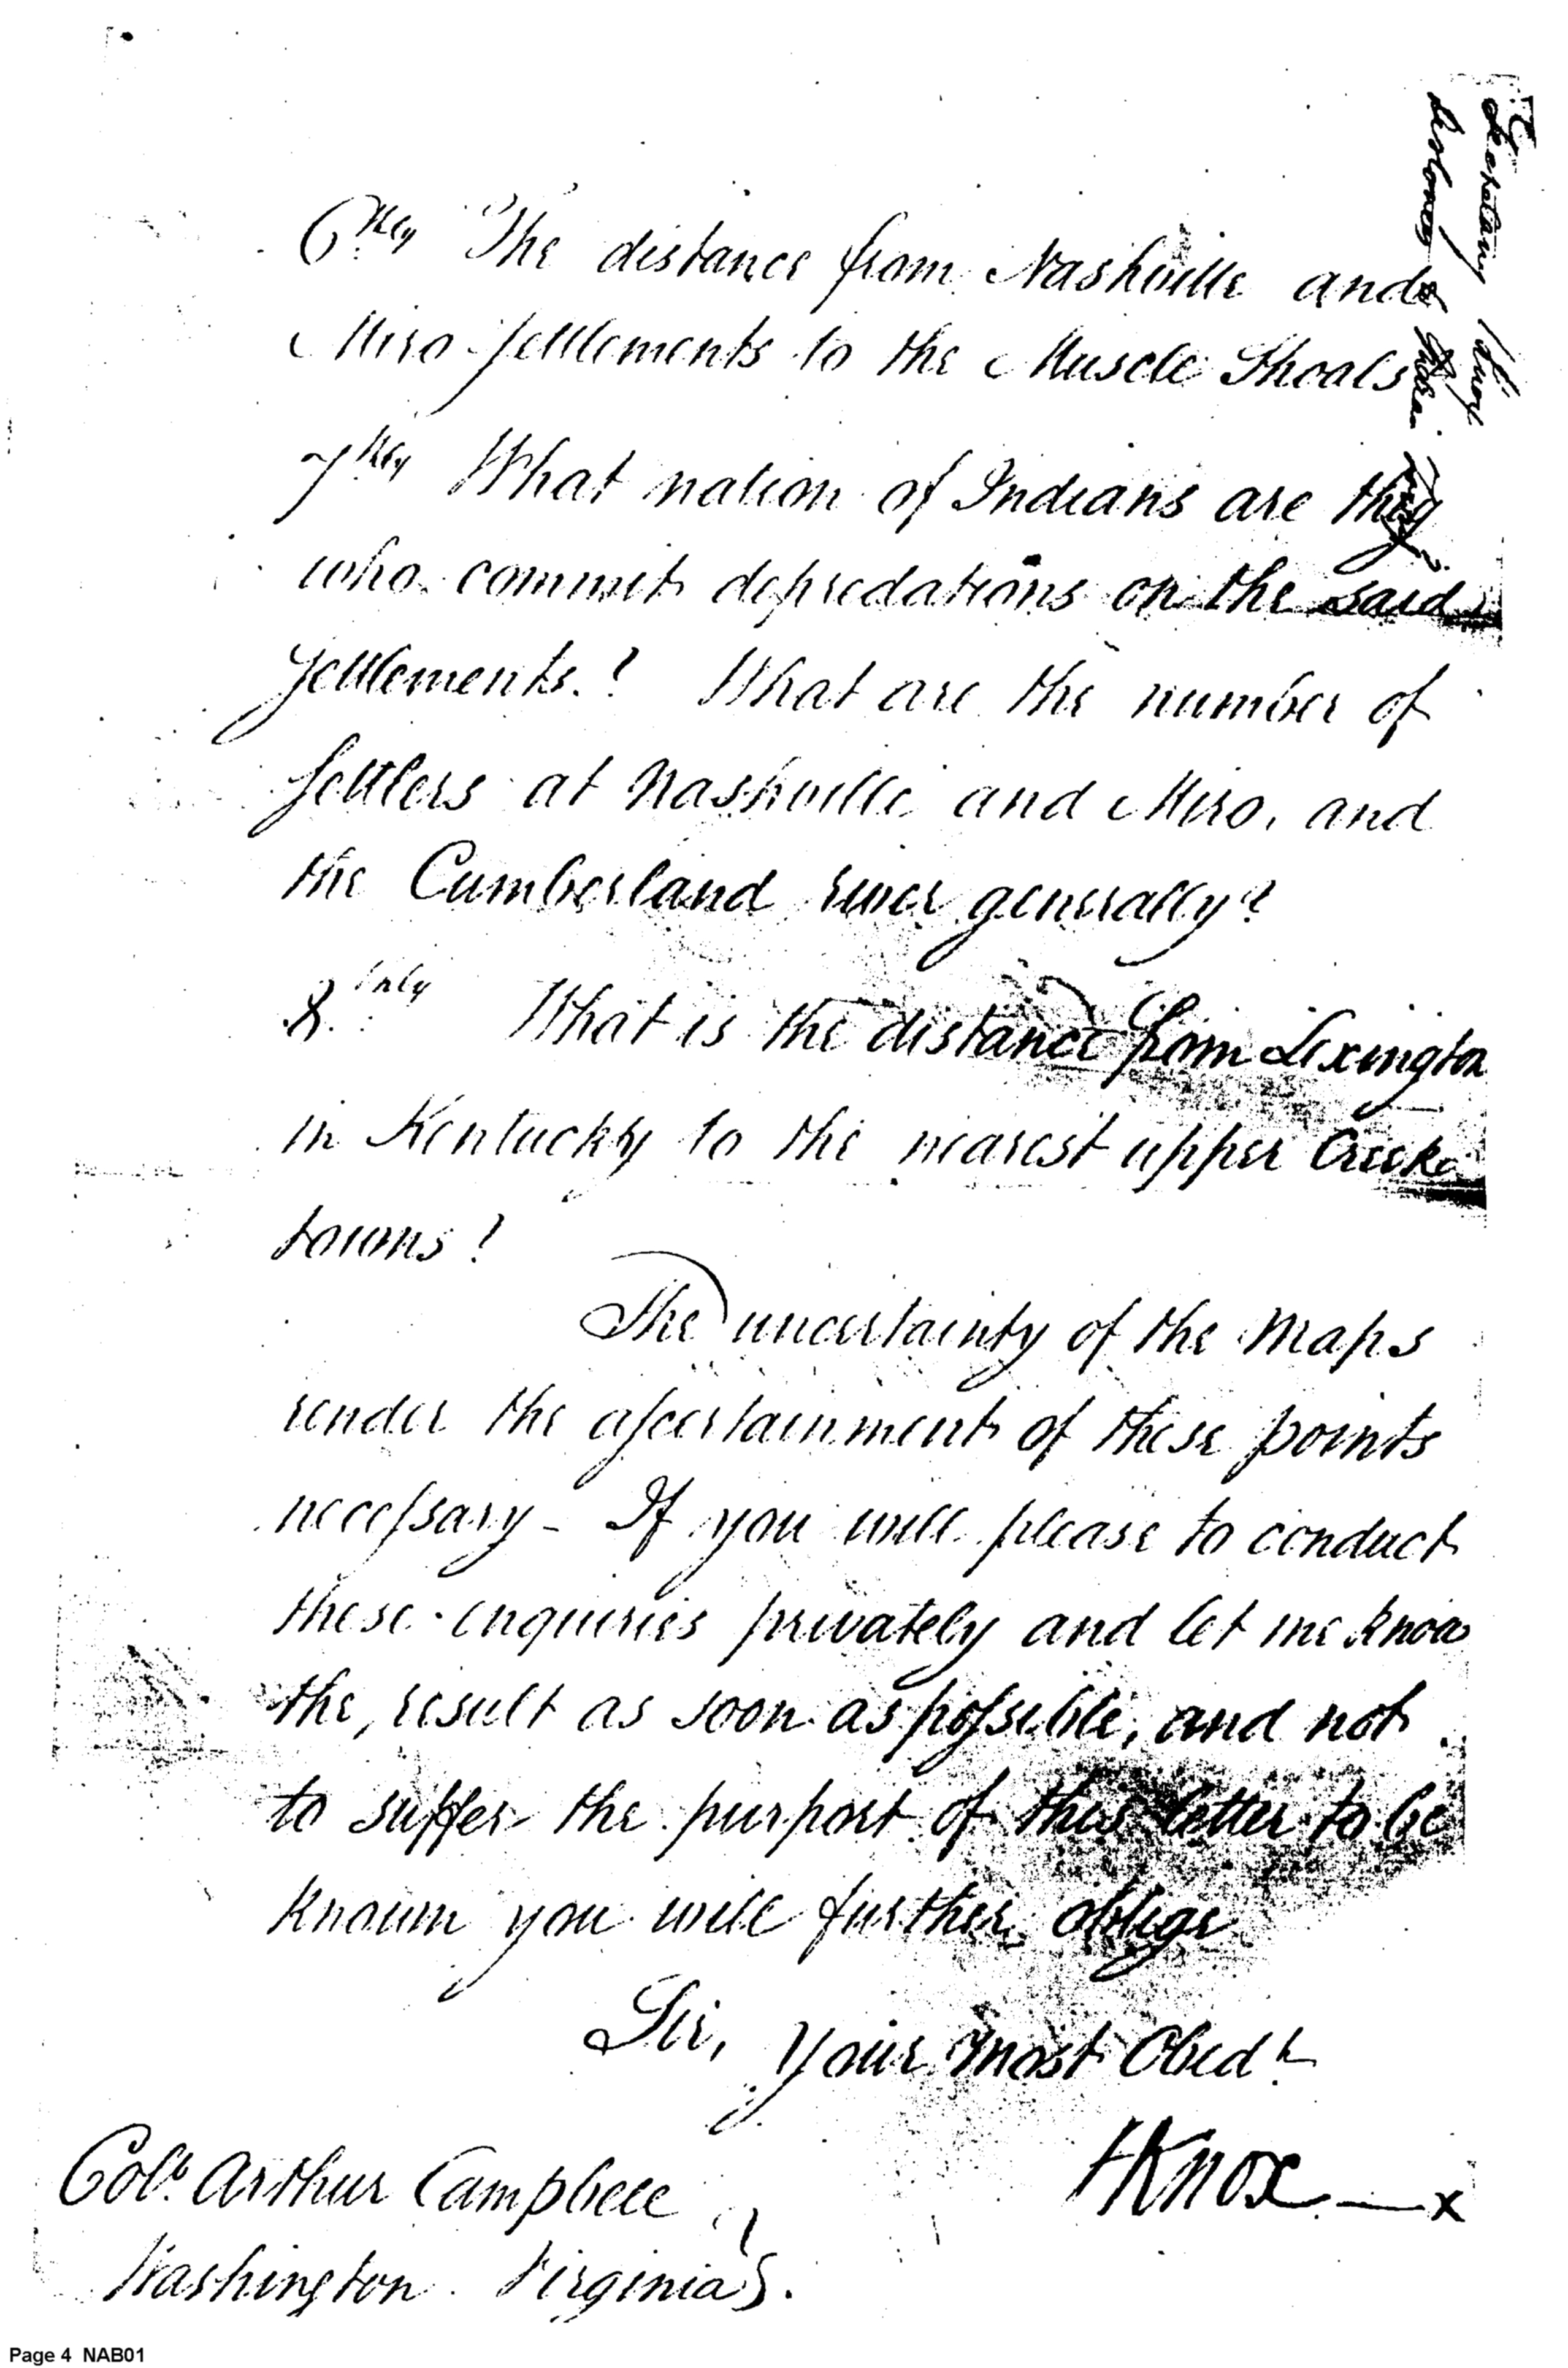 6thly The distance from Nashville and
Miro Settlements to the Muscle Shoals
7thly What nation of Indians are they
who commit depredations on the said
Settlements? What are the number of
Settlers at Nashville and Miro, and
the Cumberland river generally?
8thly What is the distance from Lexington
in Kentucky to the nearest upper Creek
towns?
The uncertainty of the Maps
render the ascertainment of these points
necessary - If you will please to conduct
these enquiries privately and let me know
the, result as soon as possible, and not
to suffer the purport of this letter to be
known you will further oblige
Sir, Your most Obedt
HKnox
Colo. Arthur Campbell
Washington. Virginia.
Secretary Knox
Page 4 NAB01